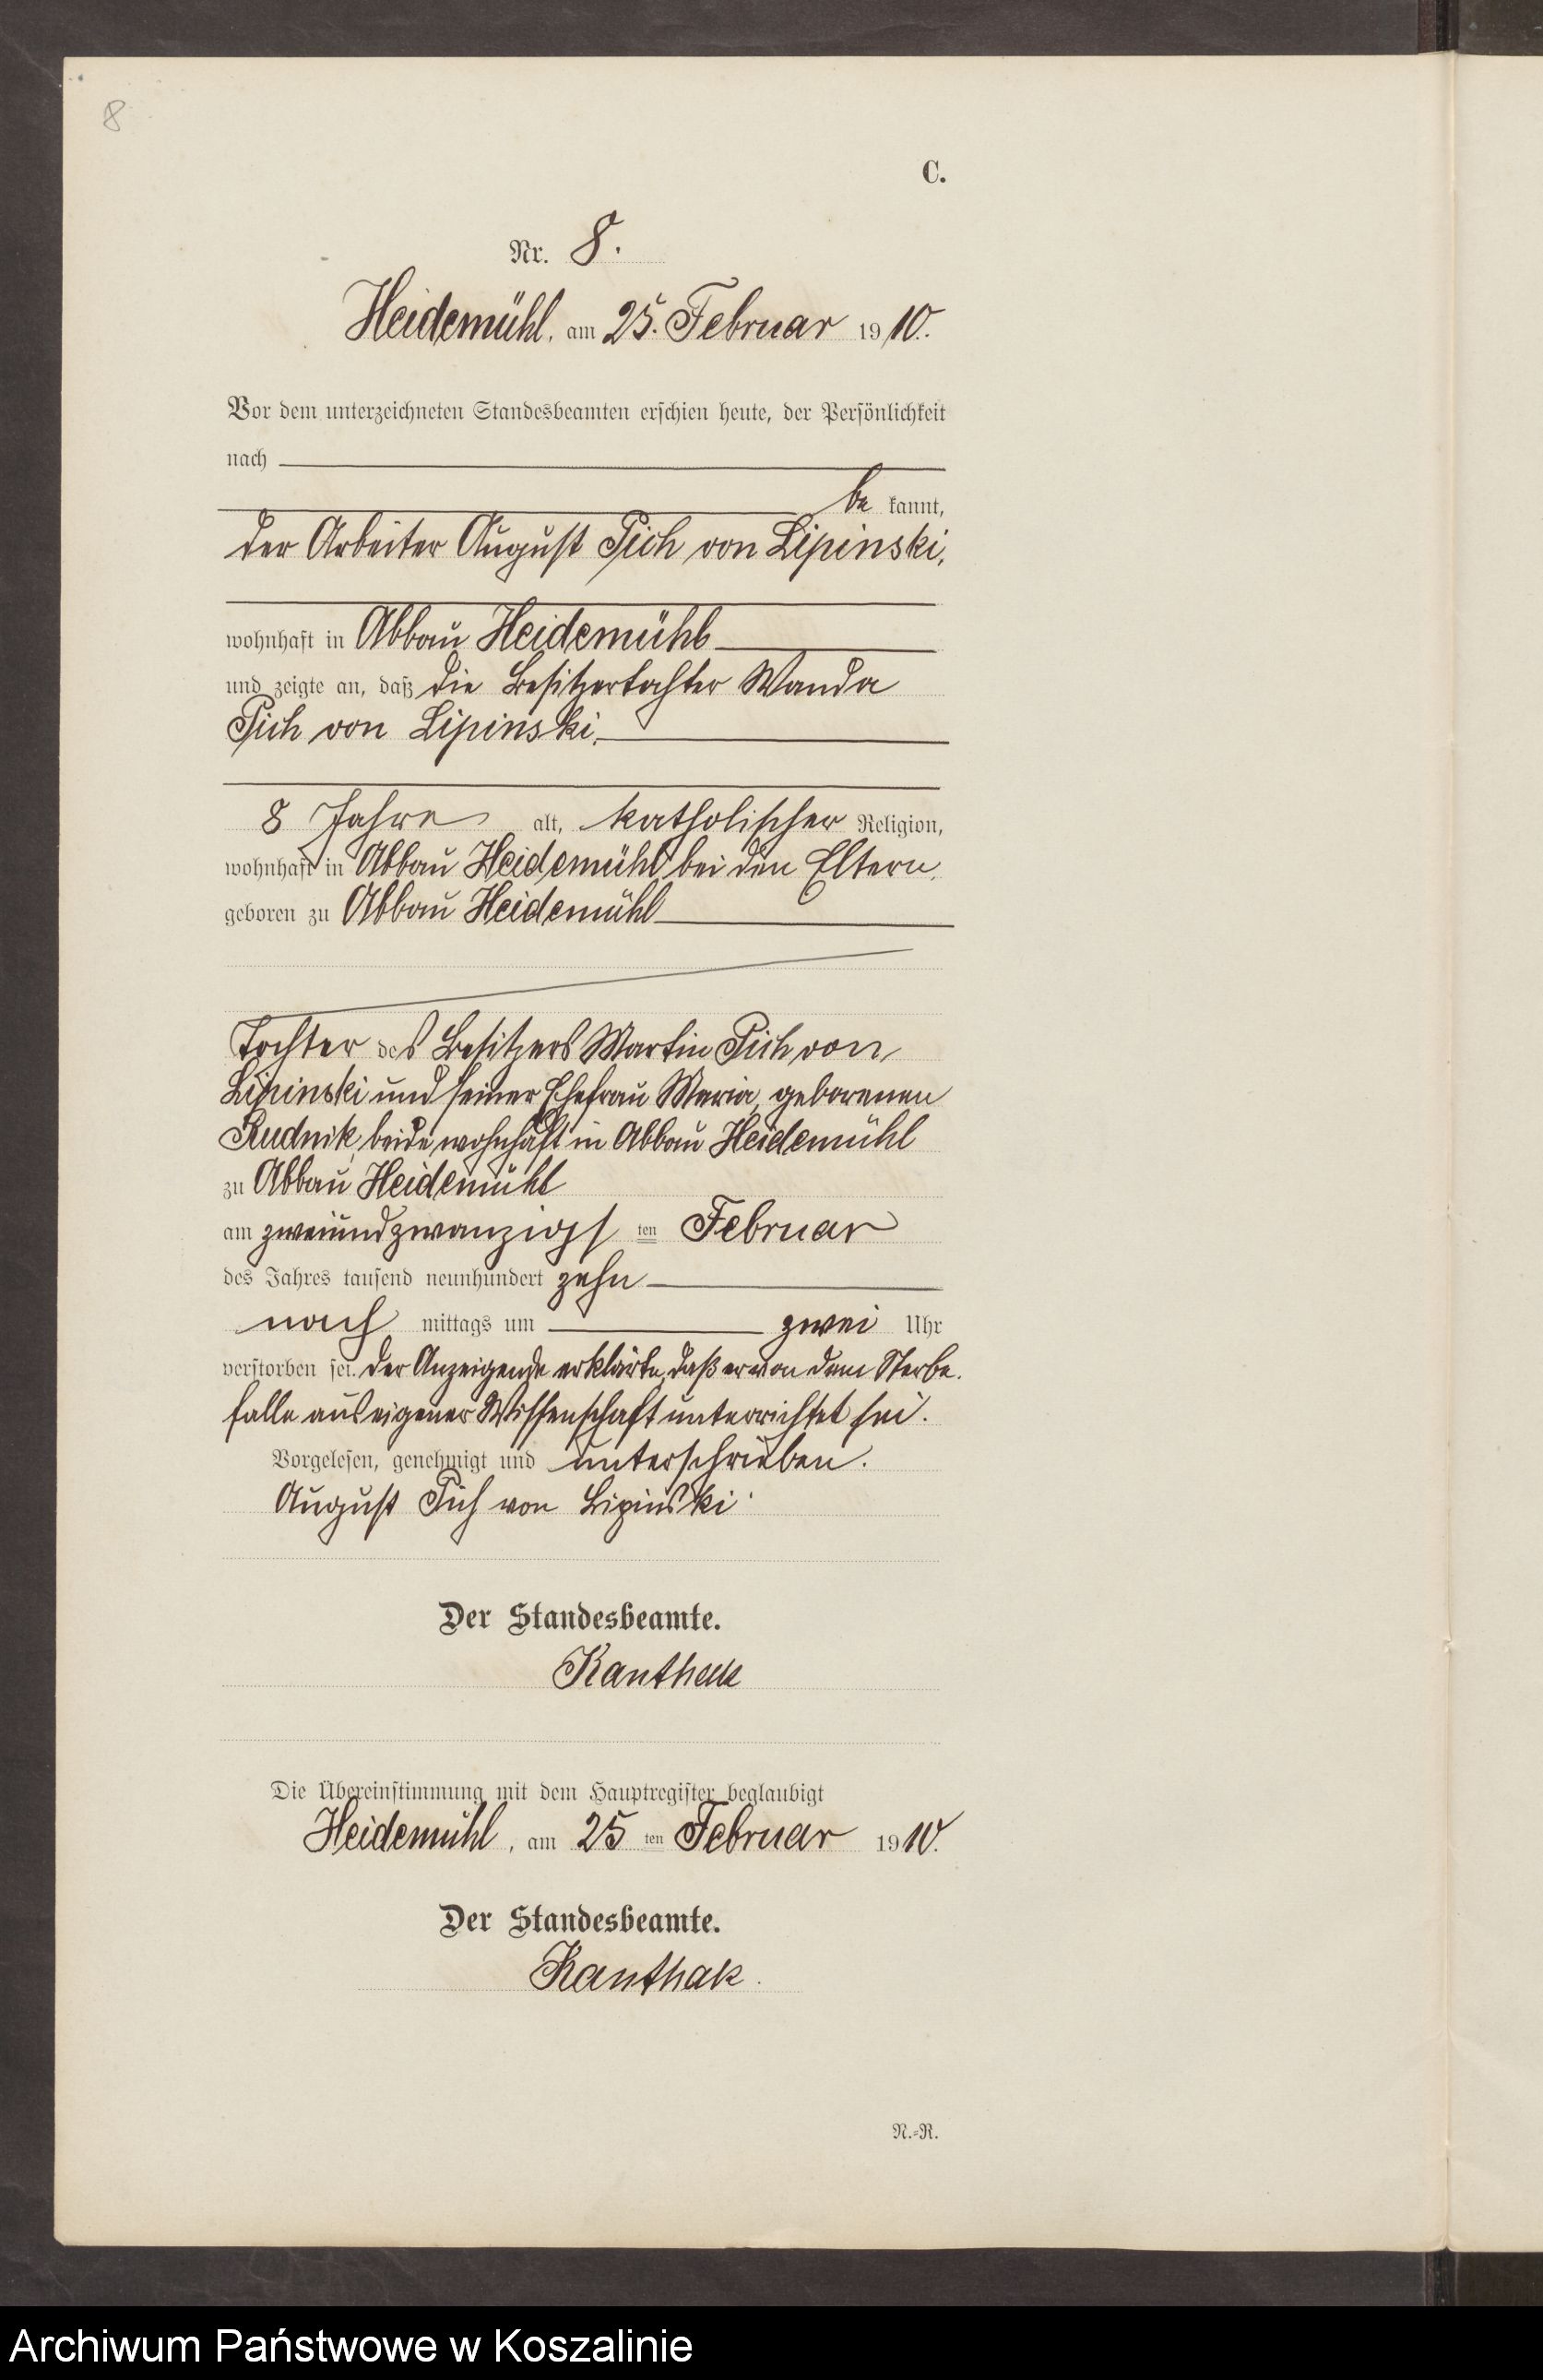 8
C.
Nr. 8.
Heidemühl, am 25. Februar 1910.
Vor dem unterzeichneten Standesbeamten erschien heute, der Persönlichkeit
nach
be kannt,
der Arbeiter August Pich von Lipinski,
wohnhaft in Abbau Heidemühl
und zeigte an, daß die Besitzertochter Wanda
Pich von Lipinski,
8 Jahre alt, katholischer Religion,
wohnhaft in Abbau Heidemühl bei den Eltern,
geboren zu Abbau Heidemühl
Tochter des Besitzers Martin Pich von
Lipinski und seiner Ehefrau Maria, geborenen
Rudnik, beide wohnhaft in Abbau Heidemühl
zu Abbau Heidemühl
am zweiundzwanzigs ten Februar
des Jahres tausend neunhundert zehn
nach mittags um zwei Uhr
verstorben sei. Der Anzeigende erklärte, daß er von dem Sterbe-
falle aus eigener Wissenschaft unterrichtet sei.
Vorgelesen, genehmigt und unterschrieben.
August Pich von Lipinski
Der Standesbeamte.
Kanthak
Die Übereinstimmung mit dem Hauptregister beglaubigt
Heidemühl, am 25 ten Februar 1910.
Der Standesbeamte.
Kanthak.
N.-R.
Archiwum Państwowe w Koszalinie